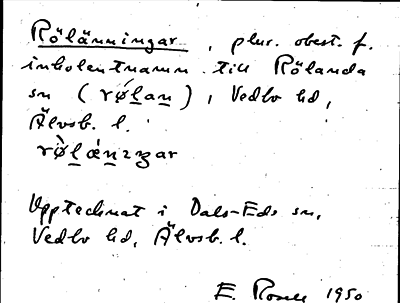 Rölänningar, plur. obest. f.
inbolentnamn till Rölanda
sn (rø̄lan), Vedbo hd,
Älvsb. l.
rø̀lániŋar
Upptecknat i Dals-Eds sn,
Vedbo hd, Älvsb. l.
E. Rosell 1950